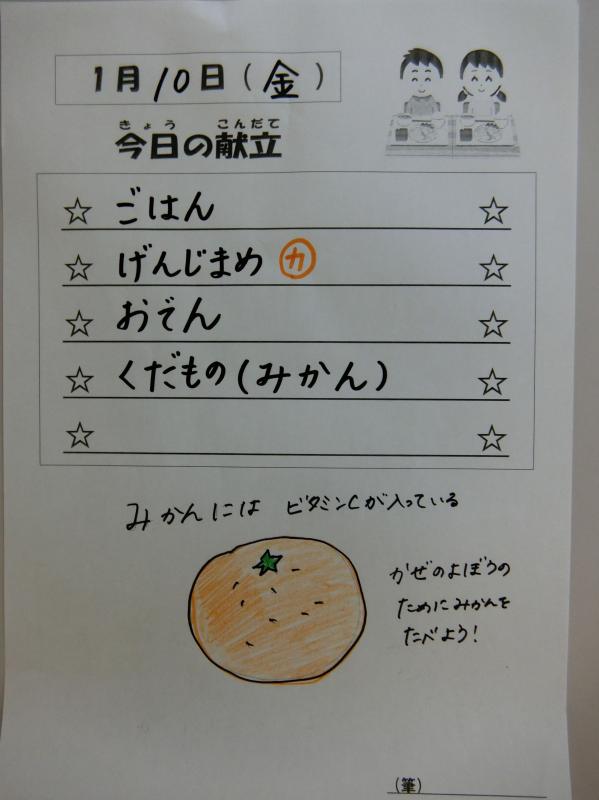 1月10日(金)
きょう こんだて
今日の献立
☆ ごはん ☆
☆ げんじまめ カ ☆
☆ おでん ☆
☆ くだもの(みかん) ☆
☆ ☆
みかんには ビタミンCが入っている
かぜのよぼうの
ためにみかんを
たべよう!
(筆)